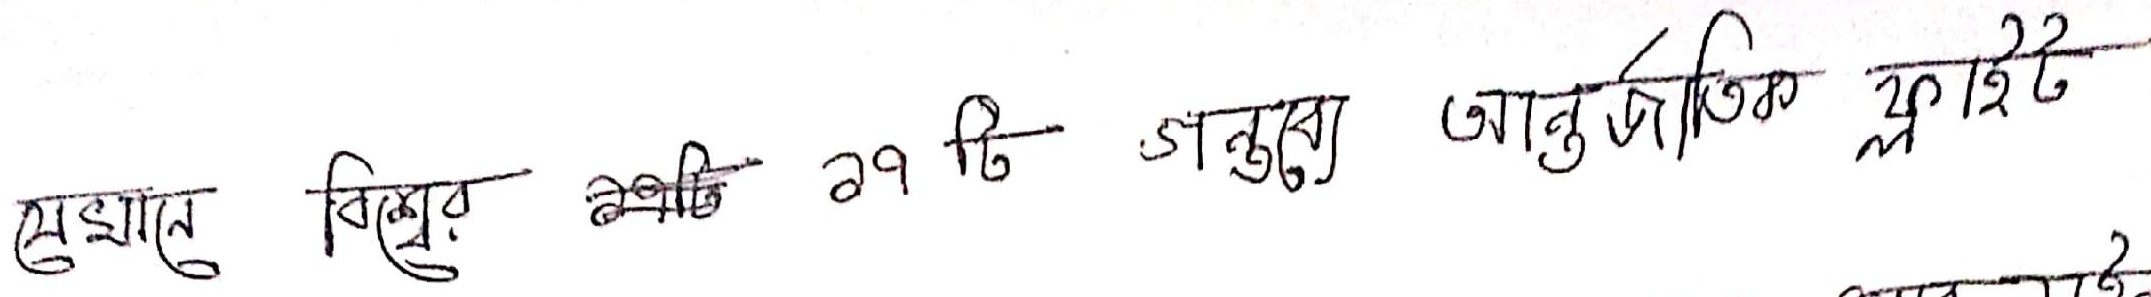 সেখানে বিশ্বের ২৭ টি গন্তব্যে আন্তর্জাতিক ফ্লাইট